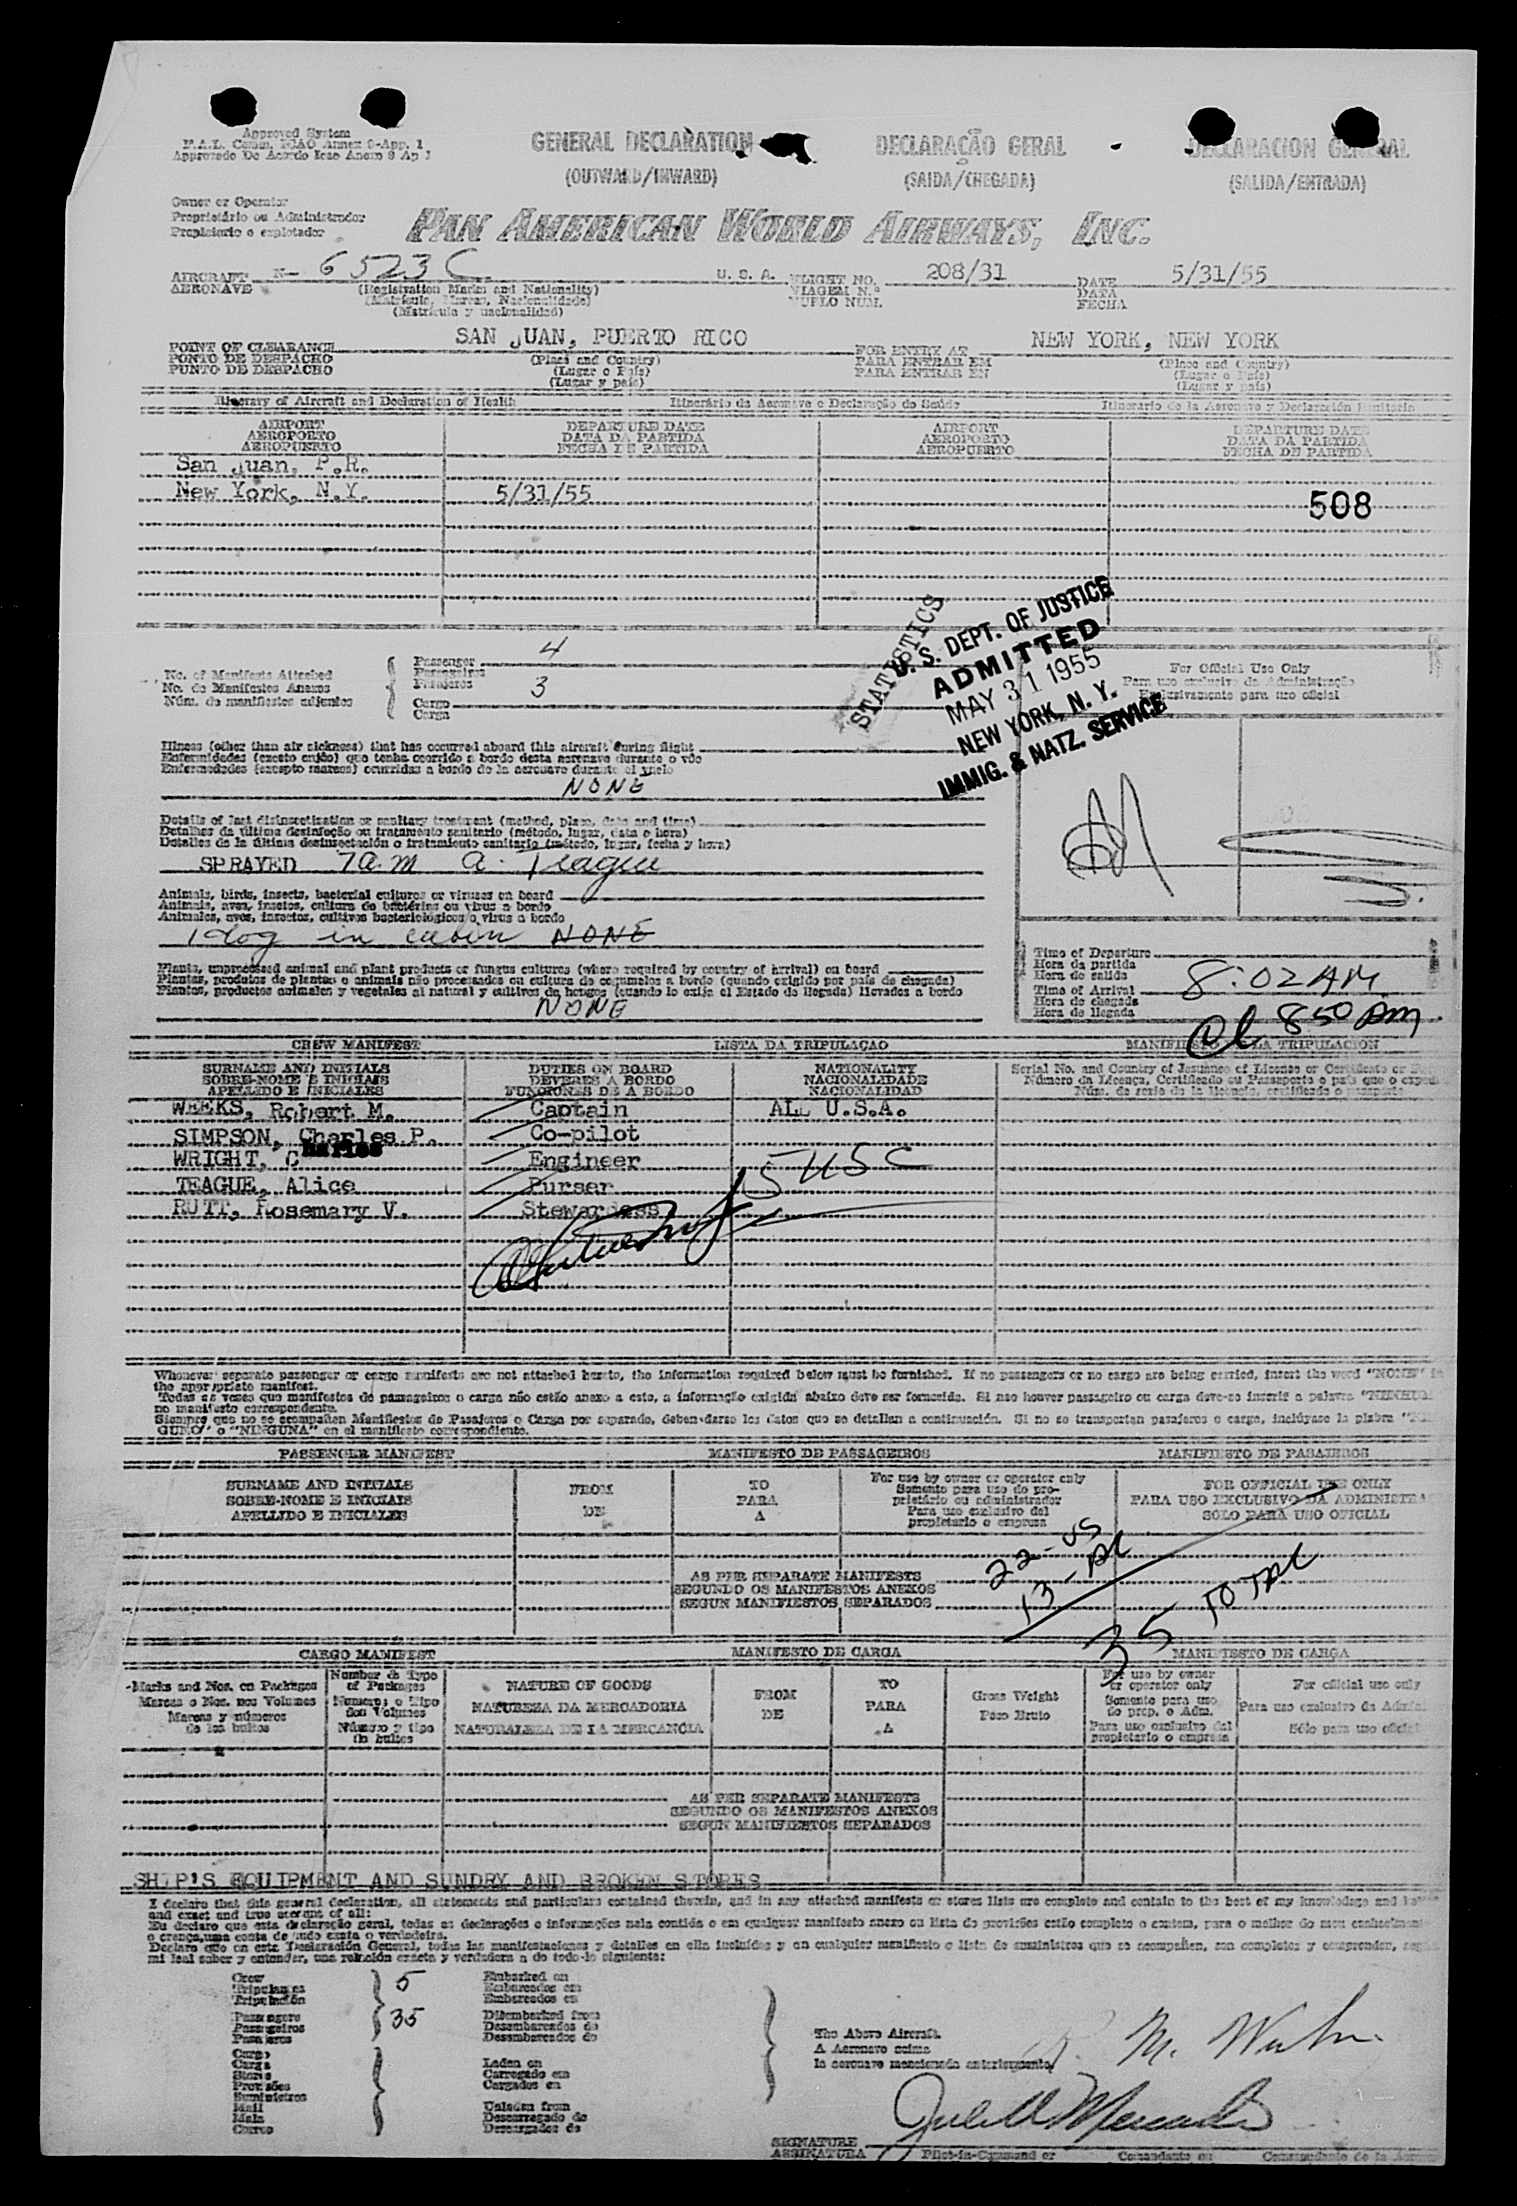 Approved System
F.A.L. Comm. ICAO Annex 9-App. 1
Approvado De Acordo Icao Anexo 9 Ap 1
GENERAL DECLARATION
(OUTWARD/INWARD)
DECLARAÇÃO GERAL
(SAIDA/CHEGADA)
DECLARACION GENERAL
(SALIDA/ENTRADA)
Owner or Operator
Proprietário ou Administrador
Propietario o explotador
PAN AMERICAN WORLD AIRWAYS, INC.
AIRCRAFT N- 6523C U. S. A. FLIGHT NO. 208/31 DATE 5/31/55
AERONAVE (Registration Marks and Nationality) VIAGEM N.º DATA
(Matrícula, Marcas, Nacionalidade) VUELO NUM. FECHA
(Matrícula y nacionalidad)
POINT OF CLEARANCE SAN JUAN, PUERTO RICO FOR ENTRY AT NEW YORK, NEW YORK
PONTO DE DESPACHO (Place and Country) PARA ENTRAR EM (Place and Country)
PUNTO DE DESPACHO (Lugar o País) PARA ENTRAR EN (Lugar o País)
(Lugar y país) (Lugar y país)
Itinerary of Aircraft and Declaration of Health Itinerário da Aeronave e Declaração de Saúde Itinerario de la Aeronave y Declaración Sanitaria
AIRPORT DEPARTURE DATE AIRPORT DEPARTURE DATE
AEROPORTO DATA DA PARTIDA AEROPORTO DATA DA PARTIDA
AEROPUERTO FECHA DE PARTIDA AEROPUERTO FECHA DE PARTIDA
San Juan, P.R.
New York, N.Y. 5/31/55
508
STATISTICS
U. S. DEPT. OF JUSTICE
ADMITTED
MAY 31 1955
NEW YORK, N. Y.
IMMIG. & NATZ. SERVICE
No. of Manifests Attached
No. de Manifestos Anexos
Núm. de manifiestos adjuntos
Passenger 4
Passageiros
Pasajeros 3
Cargo
Carga
For Official Use Only
Para uso exclusivo da Administração
Exclusivamente para uso oficial
Illness (other than air sickness) that has occurred aboard this aircraft during flight
Enfermidades (exceto enjôo) que tenha ocorrido a bordo desta aeronave durante o vôo
Enfermedades (excepto mareos) ocurridas a bordo de la aeronave durante el vuelo
NONE
Details of last disinsectization or sanitary treatment (method, place, date and time)
Detalhes da última desinfeção ou tratamento sanitario (método, lugar, data e hora)
Detalles de la última desinsectación o tratamiento sanitario (método, lugar, fecha y hora)
SPRAYED 7am a. Teague
Animals, birds, insects, bacterial cultures or viruses on board
Animais, aves, insetos, cultura de bactérias ou virus a bordo
Animales, aves, insectos, cultivos bacteriológicos o virus a bordo
1 dog in cabin NONE
Plants, unprocessed animal and plant products or fungus cultures (where required by country of arrival) on board
Plantas, produtos de plantas o animais não processados ou cultura de cogumelos a bordo (quando exigido por país de chegada)
Plantas, productos animales y vegetales al natural y cultivos de hongos (cuando lo exija el Estado de llegada) llevados a bordo
NONE
Time of Departure
Hora da partida
Hora de salida
Time of Arrival 8:02 AM
Hora de chegada
Hora de llegada
850 Am
CREW MANIFEST LISTA DA TRIPULAÇAO MANIFIESTO DE LA TRIPULACION
SURNAME AND INITIALS DUTIES ON BOARD NATIONALITY
SOBRE-NOME E INICIAIS DEVERES A BORDO NACIONALIDADE
APELLIDO E INICIALES FUNCIONES DE A BORDO NACIONALIDAD
Serial No. and Country of Issuance of License or Certificate or
Número da Licença, Certificado ou Passaporte e país que o
Núm. de serie de la licencia, certificado o pasaporte
WEEKS, Robert M. Captain ALL U.S.A.
SIMPSON, Charles P. Co-pilot
WRIGHT, Charles Engineer
5 USC
TEAGUE, Alice Purser
RUTT, Rosemary V. Stewardess
Whenever separate passenger or cargo manifests are not attached hereto, the information required below must be furnished. If no passengers or no cargo are being carried, insert the word "NONE" in
the appropriate manifest.
Todas as vezes que manifestos de passageiros o carga não estão anexo a este, a informação exigida abaixo deve ser fornecida. Si nao houver passageiro ou carga deve-se inserir a palavra
no manifesto correspondente.
Siempre que no se acompañen Manifiestos de Pasajeros o Carga por separado, deben darse los datos que se detallan a continuación. Si no se transportan pasajeros o carga, inclúyase la plabra
GUNO" o "NINGUNA" en el manifiesto correspondiente.
PASSENGER MANIFEST MANIFESTO DE PASSAGEIROS MANIFIESTO DE PASAJEROS
SURNAME AND INITIALS
SOBRE-NOME E INICIAIS
APELLIDO E INICIALES
FROM
DE
TO
PARA
A
For use by owner or operator only
Somente para uso do pro-
prietário ou administrador
Para uso exclusivo del
propietario o empresa
FOR OFFICIAL USE ONLY
PARA USO EXCLUSIVO DA ADMINISTRA
SOLO PARA USO OFICIAL
AS PER SEPARATE MANIFESTS
SEGUNDO OS MANIFESTOS ANEXOS
SEGUN MANIFIESTOS SEPARADOS
22-US
13-AL
35 TOTAL
CARGO MANIFEST MANIFESTO DE CARGA MANIFIESTO DE CARGA
Marks and Nos. on Packages
Marcas e Nos. nos Volumes
Marcas y números
de los bultos
Number & Type
of Packages
Numero; o Tipo
dos Volumes
Número y tipo
de bultos
NATURE OF GOODS
NATUREZA DA MERCADORIA
NATURALEZA DE LA MERCANCIA
FROM
DE
TO
PARA
A
Gross Weight
Peso Bruto
For use by owner
or operator only
Somente para uso
do prop. o Adm.
Para uso exclusivo del
propietario o empresa
For official use only
Para uso exclusivo da
Sólo para uso oficial
AS PER SEPARATE MANIFESTS
SEGUNDO OS MANIFESTOS ANEXOS
SEGUN MANIFIESTOS SEPARADOS
SHIP'S EQUIPMENT AND SUNDRY AND BROKEN STORES
I declare that this general declaration, all statements and particulars contained therein, and in any attached manifests or stores lists are complete and contain to the best of my knowledge and
and exact and true account of all:
Eu declaro que esta declaração geral, todas as declarações e informações nela contida o em qualquer manifesto anexo ou lista de provisões estão completo e contem, para o melhor do meu
o crença, uma conta de tudo exata o verdadeira.
Declaro que en esta Declaración General, todas las manifestaciones y detalles en ella incluídos y en cualquier manifiesto o lista de suministros que se acompañen, son completos y comprenden,
mi leal saber y entender, una relación exacta y verdadera a de todo-lo siguiente:
Crew 5
Tripulantes
Tripulación
Passengers 35
Passageiros
Pasajeros
Cargo
Carga
Stores
Provisões
Suministros
Mail
Mala
Correo
Embarked on
Embarcados em
Embarcados en
Disembarked from
Desembarcados de
Desembarcados de
Laden on
Carregado em
Cargados en
Unladen from
Descarregado de
Descargados de
The Above Aircraft.
A Aeronave acima
la aeronave mencionada anteriormente
SIGNATURE
ASSINATURA Pilot-in-Command or Comandante ou Commandante de la